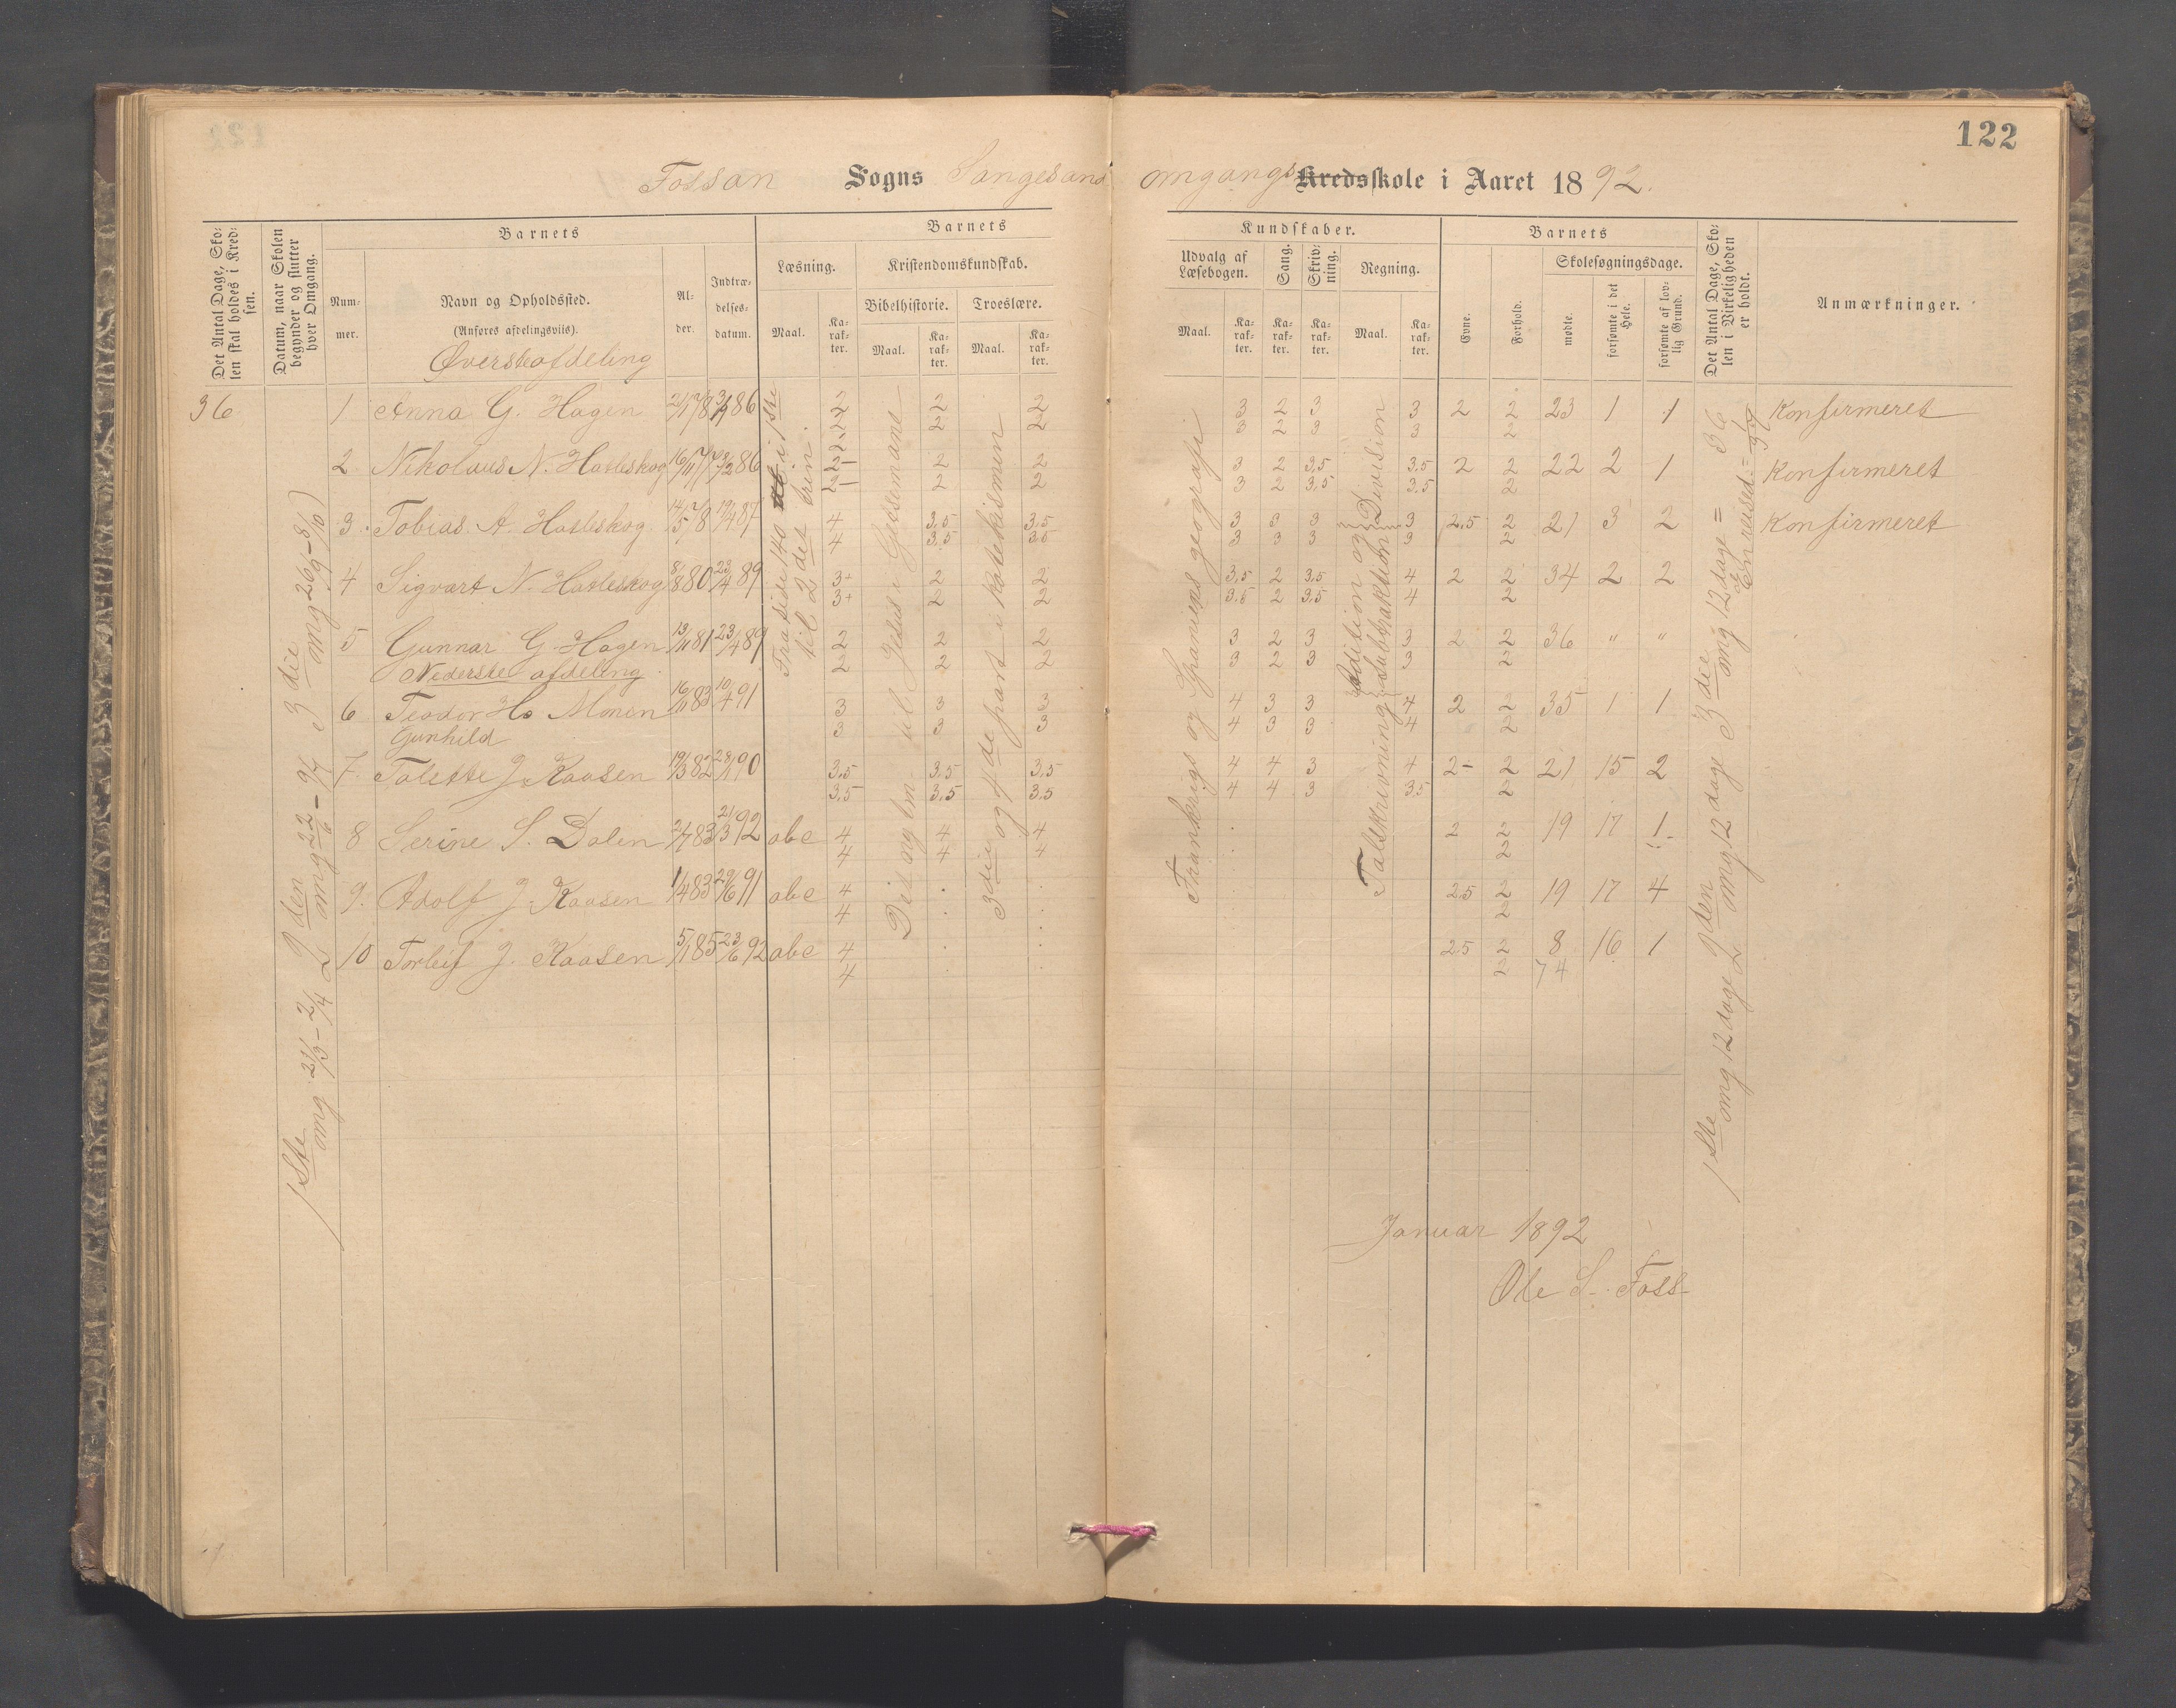 122
Fossan Sogns Sangesand omgangs Kredsskole i Aaret 1892.
Det Antal Dage, Sko-
len skal holdes i Kred-
sen.
Datum, naar Skolen
begynder og slutter
hver Omgang.
Barnets
Num-
mer.
Navn og Opholdssted.
(Anføres afdelingsviis).
Øversteafdeling
Al-
der.
Indtræ-
delses-
datum.
Barnets
Læsning.
Maal.
Ka-
rak-
ter.
Kristendomskundskab.
Bibelhistorie.
Maal.
Ka-
rak-
ter.
Troeslære.
Maal.
Ka-
rak-
ter.
Kundskaber.
Udvalg af
Læsebogen.
Maal.
Ka-
rak-
ter.
Sang.
Ka-
rak-
ter.
Skriv-
ning.
Ka-
rak-
ter.
Regning.
Maal.
Ka-
rak-
ter.
Barnets
Evne.
Forhold.
Skolesøgningsdage.
mødte.
forsømte i det
Hele.
forsømte af lov-
lig Grund.
Det Antal Dage, Sko-
len i Virkeligheden
er holdt.
Anmærkninger.
36
1ste omg 21/3 – 2/4 2den omg 22/6 – 9/7 3die omg 26/9 – 8/10
Fra side 140 i 1ste
til 2det trin.
Disaglm til Jesus i Getsemane
3die og 4de part i katekismen
Frankrigs og Spaniens geografi
Talskrivning Adition og subtraktion Division
1ste omg 12 dage 2den omg 12 dage 3die omg 12 dage = 36
1 Anna G. Hagen 2/1 78 3/1 86 2 2 2 3 2 3 3 2 2 23 1 1 Konfirmeret
2 2 2 3 2 3 3 2
2 Nikolaus N. Hatleskog 16/11 77 3/2 86 2- 2 2 3 2 3,5 3,5 2 2 22 2 1 Konfirmeret
2- 2 2 3 2 3,5 3,5 2
3. Tobias. A. Hatleskog 14/5 78 19/4 87 4 3,5 3,5 3 3 3 3 2,5 2 21 3 2 Konfirmeret
4 3,5 3,5 3 3 3 3 2
4 Sigvart N. Hatleskog 8/8 80 23/4 89 3+ 2 2 3,5 2 3,5 4 2 2 34 2 2
3+ 2 2 3,5 2 3,5 4 2
5 Gunnar G. Hagen 13/11 81 23/4 89 2 2 2 3 2 3 3 2 2 36 " "
2 2 2 3 2 3 3 2
Nederste afdeling
6 Teodor Hs Monen 16/11 83 10/4 91 3 3 3 4 3 3 4 2 2 35 1 1
3 3 3 4 3 3 4 2
Gunhild
7. Talette J. Kaasen 19/3 82 28/1 90 3,5 3,5 3,5 4 4 3 4 2- 2 21 15 2
3,5 3,5 3,5 4 4 3 3,5 2
8 Serine S. Dalen 2/7 83 21/3 92 abc 4 4 4 2 2 19 17 1
4 4 4 2
9. Adolf J. Kaasen 1/4 83 29/6 91 abc 4 2,5 2 19 17 4
4 2
10 Torleif J. Kaasen 5/1 85 23/6 92 abc 4 25 2 8 16 1
4 2 74
Januar 1892
Ole S. Foss